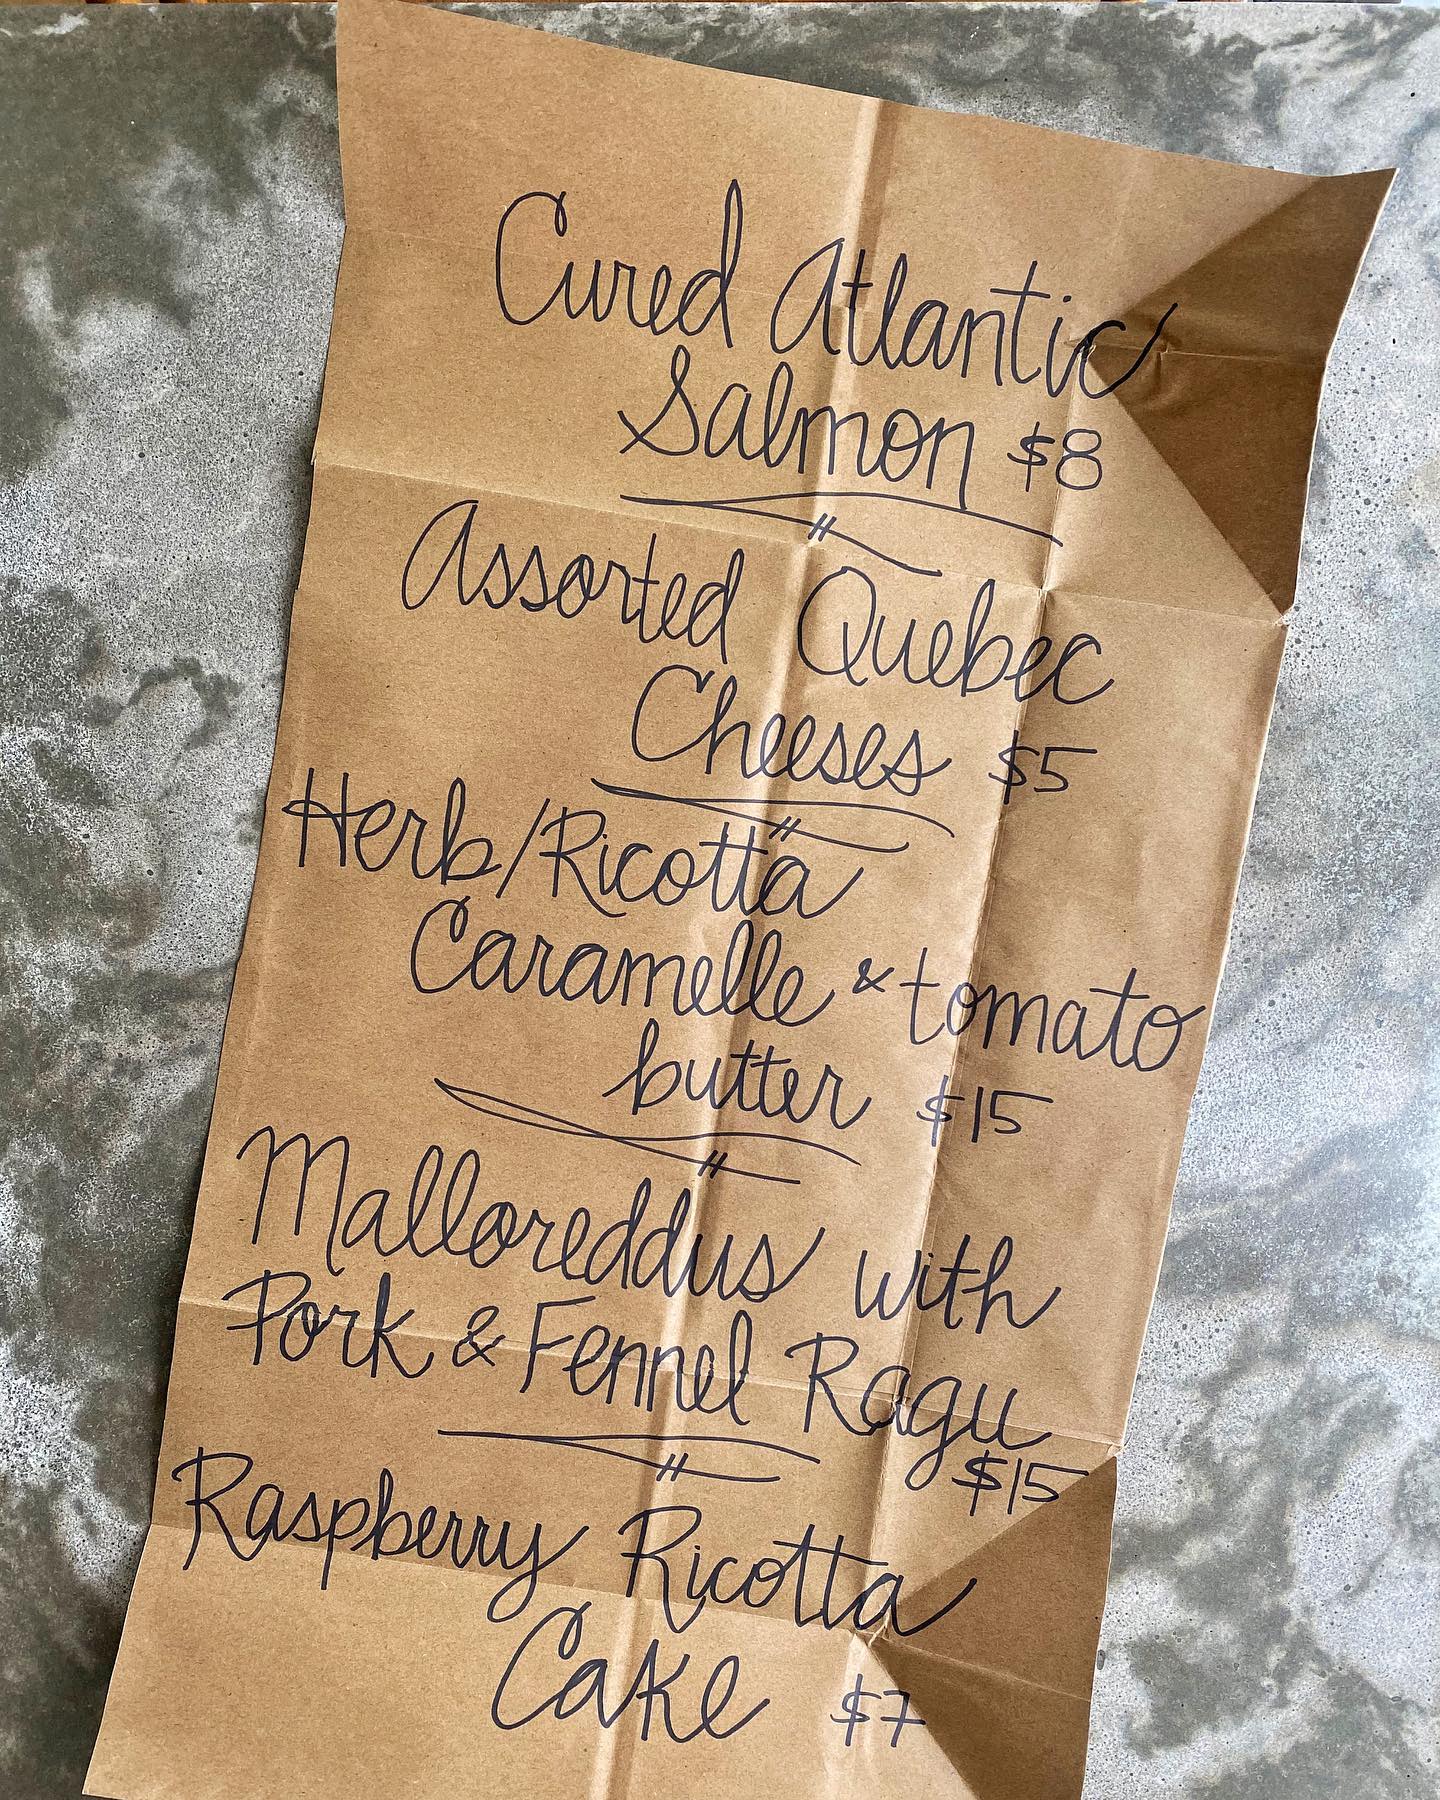 Cured Atlantic
Salmon $8
Assorted Quebec
Cheeses $5
Herb/Ricotta
Caramelle & tomato
butter $15
Malloreddus with
Pork & Fennel Ragu
$15
Raspberry Ricotta
Cake $7